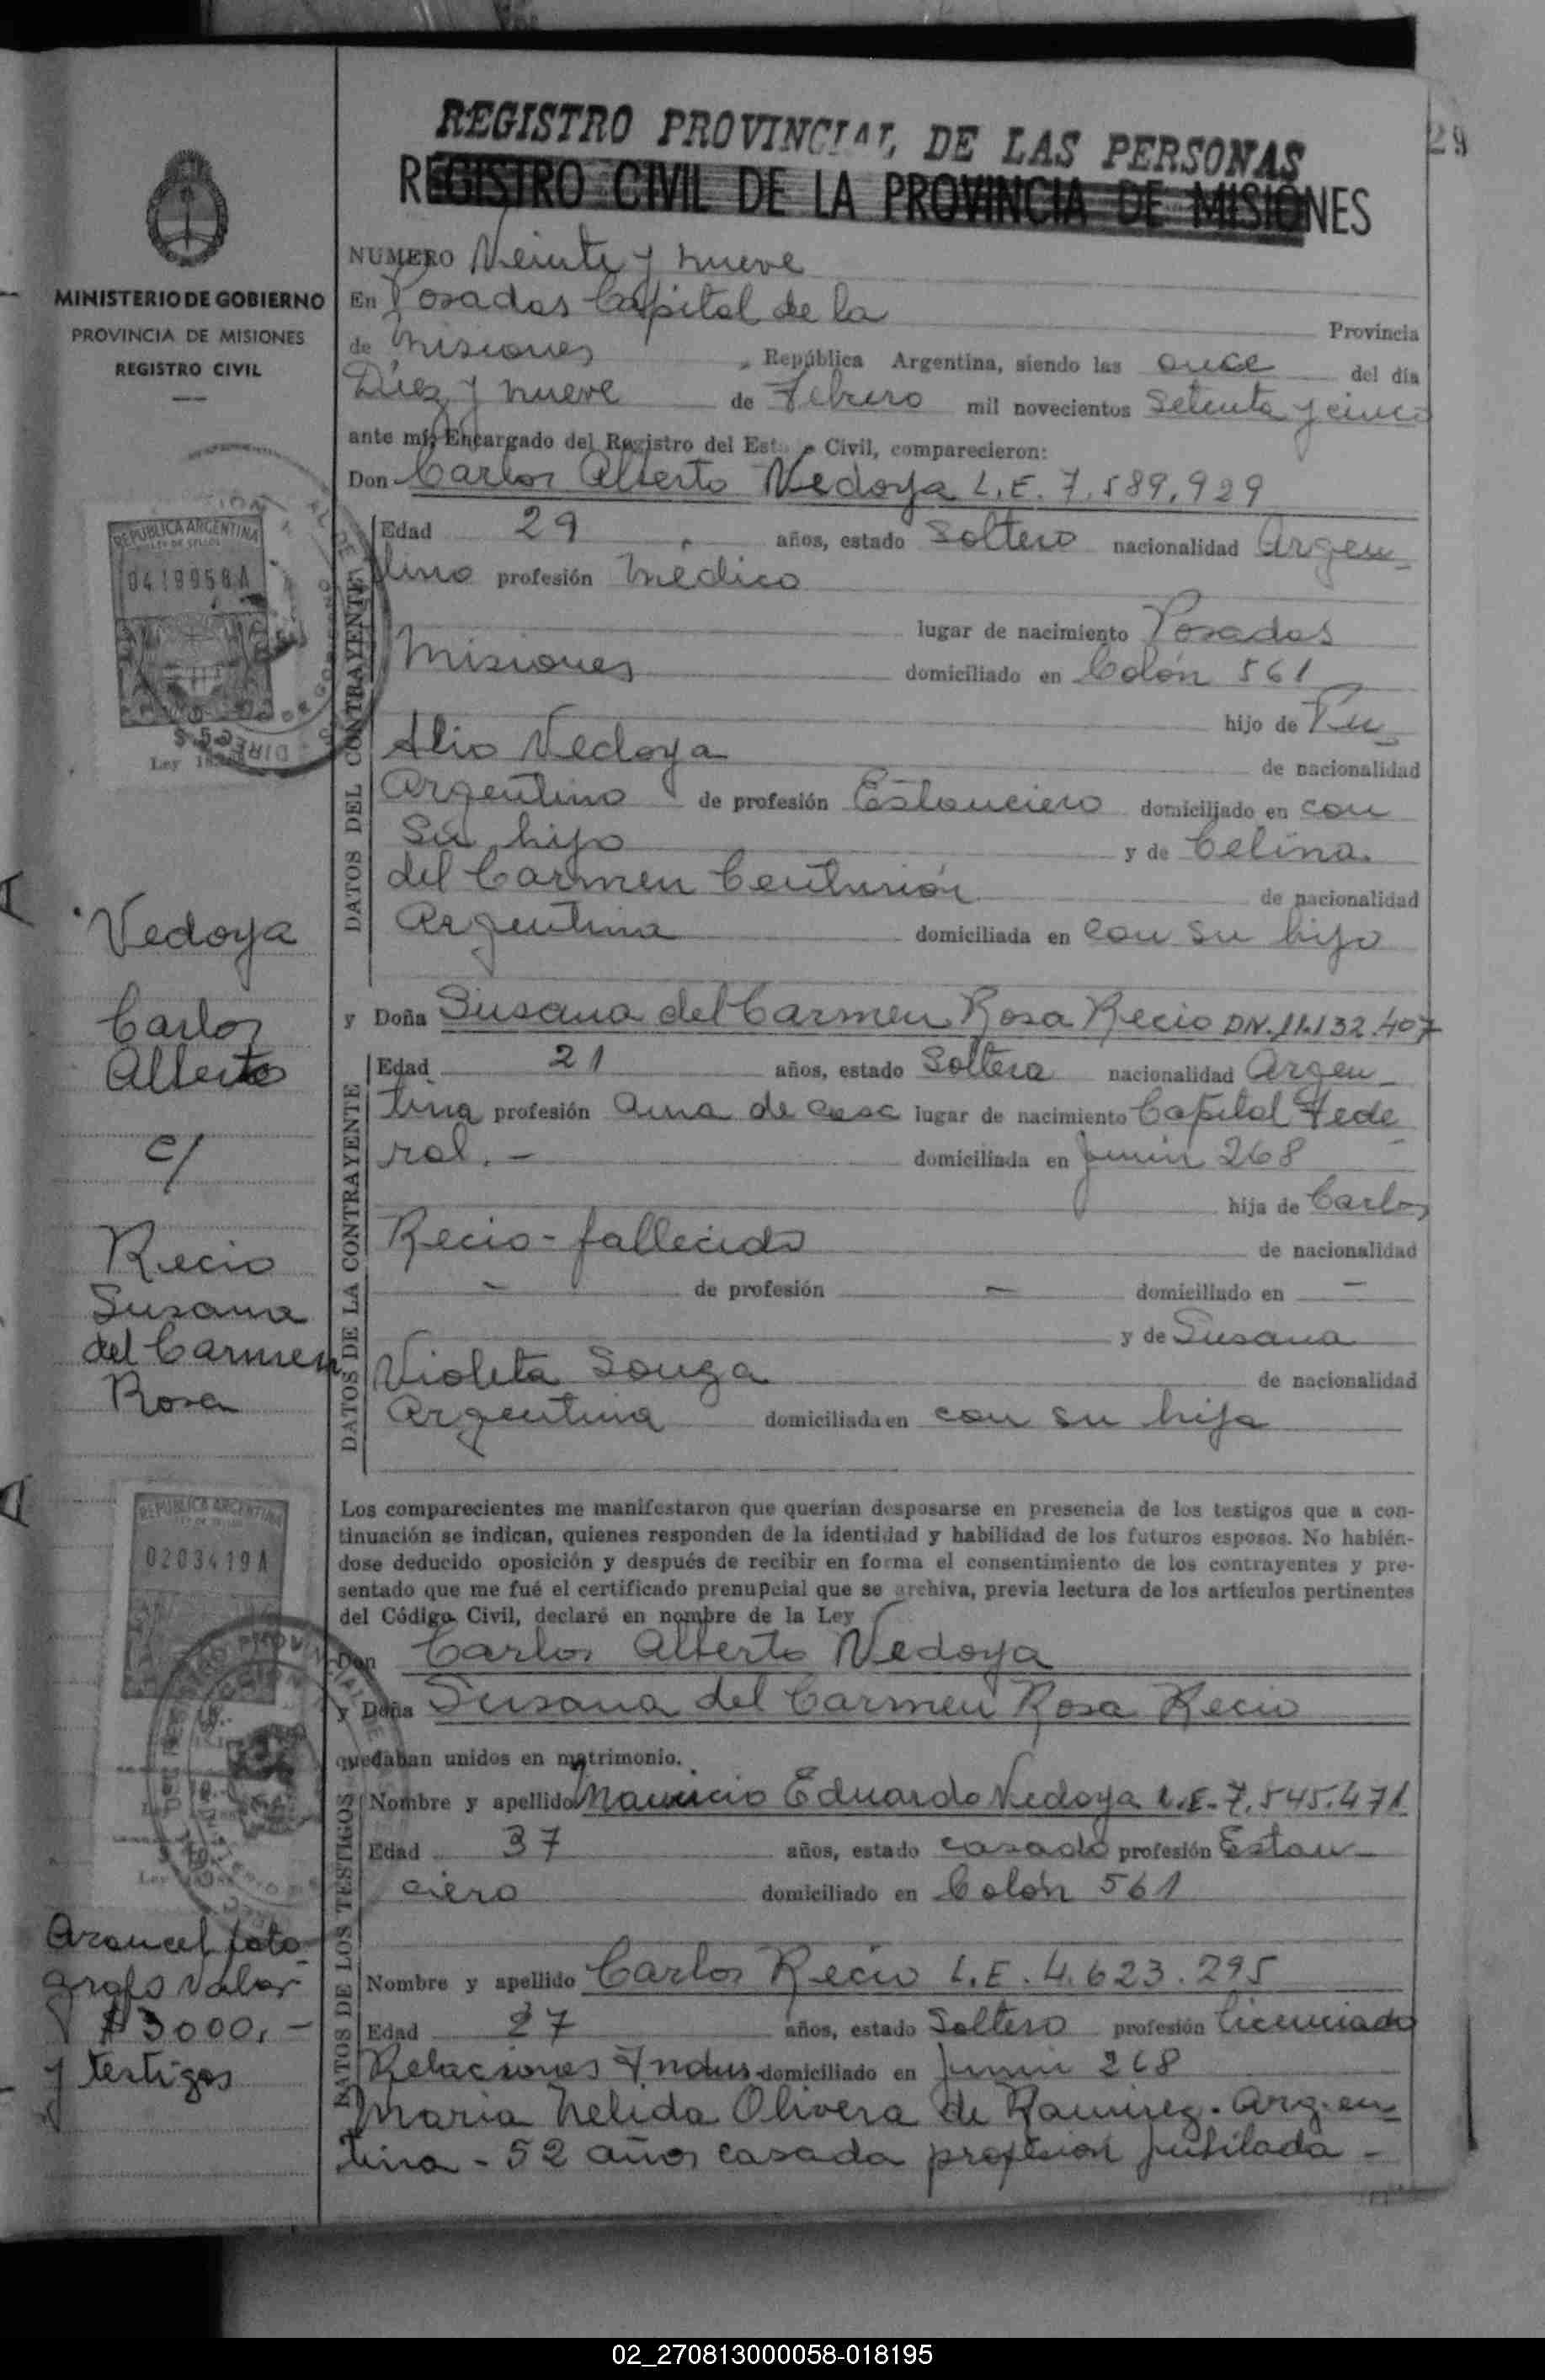 29
REGISTRO PROVINCIAL DE LAS PERSONAS
REGISTRO CIVIL DE LA PROVINCIA DE MISIONES
MINISTERIO DE GOBIERNO
PROVINCIA DE MISIONES
REGISTRO CIVIL
REPUBLICA ARGENTINA
LEY DE SELLOS
0419958A
Vedoya
Carlos
Alberto
c/
Recio
Susana
del Carmen
Rosa
REPUBLICA ARGENTINA
0203419A
Arancel foto-
grafo valor
$ 3000,-
y testigos
NUMERO Veinte y nueve
En Posadas Capital de la
Provincia
de Misiones, República Argentina, siendo las once del día
Diez y nueve de Febrero mil novecientos Setenta y cinco
ante mí, Encargado del Registro del Estado Civil, comparecieron:
Don Carlos Alberto Vedoya L.E. 7.589.929
DATOS DEL CONTRAYENTE
Edad 29 años, estado Soltero nacionalidad Argen-
tino profesión Médico
lugar de nacimiento Posadas
Misiones domiciliado en Colón 561
hijo de
Alio Vedoya de nacionalidad
Argentino de profesión Estanciero domiciliado en con
su hijo y de Celina
del Carmen Centurión de nacionalidad
Argentina domiciliada en con su hijo
y Doña Susana del Carmen Rosa Recio DN. 11.132.407
DATOS DE LA CONTRAYENTE
Edad 21 años, estado Soltera nacionalidad Argen-
tina profesión ama de casa lugar de nacimiento Capital Fede-
ral.- domiciliada en Junin 268
hija de Carlos
Recio - fallecido de nacionalidad
- de profesión - domiciliado en -
y de Susana
Violeta Souza de nacionalidad
Argentina domiciliada en con su hija
Los comparecientes me manifestaron que querían desposarse en presencia de los testigos que a con-
tinuación se indican, quienes responden de la identidad y habilidad de los futuros esposos. No habién-
dose deducido oposición y después de recibir en forma el consentimiento de los contrayentes y pre-
sentado que me fué el certificado prenupcial que se archiva, previa lectura de los artículos pertinentes
del Código Civil, declaré en nombre de la Ley
Don Carlos Alberto Vedoya
y Doña Susana del Carmen Rosa Recio
quedaban unidos en matrimonio.
DATOS DE LOS TESTIGOS
Nombre y apellido Mauricio Eduardo Vedoya L.E. 7.545.471
Edad 37 años, estado casado profesión Estan-
ciero domiciliado en Colón 561
Nombre y apellido Carlos Recio L.E. 4.623.295
Edad 27 años, estado Soltero profesión Licenciado
Relaciones Indus domiciliado en Junin 268
Maria Nelida Olivera de Ramirez. Argen-
tina - 52 años casada profesion jubilada -
02_270813000058-018195